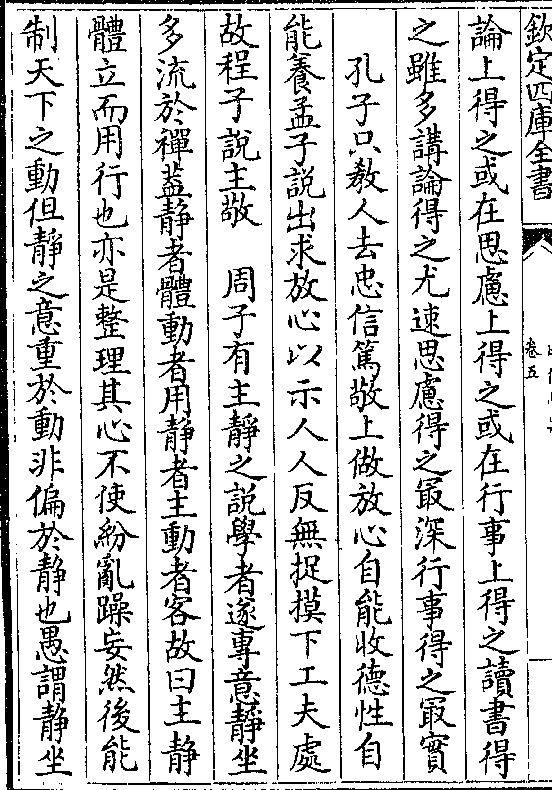 欽定四庫全書
卷五
論上得之或在思慮上得之或在行事上得之讀書得
之雖多講論得之尤速思慮得之㝡深行事得之㝡實
孔子只敎人去忠信篤敬上做放心自能收德性自
能養孟子說出求放心以示人人反無捉摸下工夫處
故程子說主敬　周子有主靜之說學者遂專意靜坐
多流於禪蓋靜者體動者用靜者主動者客故曰主靜
體立而用行也亦是整理其心不使紛亂躁妄然後能
制天下之動但靜之意重於動非偏於靜也愚謂靜坐